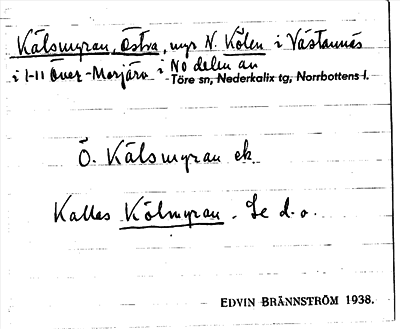 Kälsmyran, Östra, myr N. Kölen i Västannäs
i 1-11 Över-Morjärv i NO delen av
Töre sn, Nederkalix tg, Norrbottens l.
Ö. Kälsmyran ek.
Kallas Kölmyran. Se d. o.
EDVIN BRÄNNSTRÖM 1938.